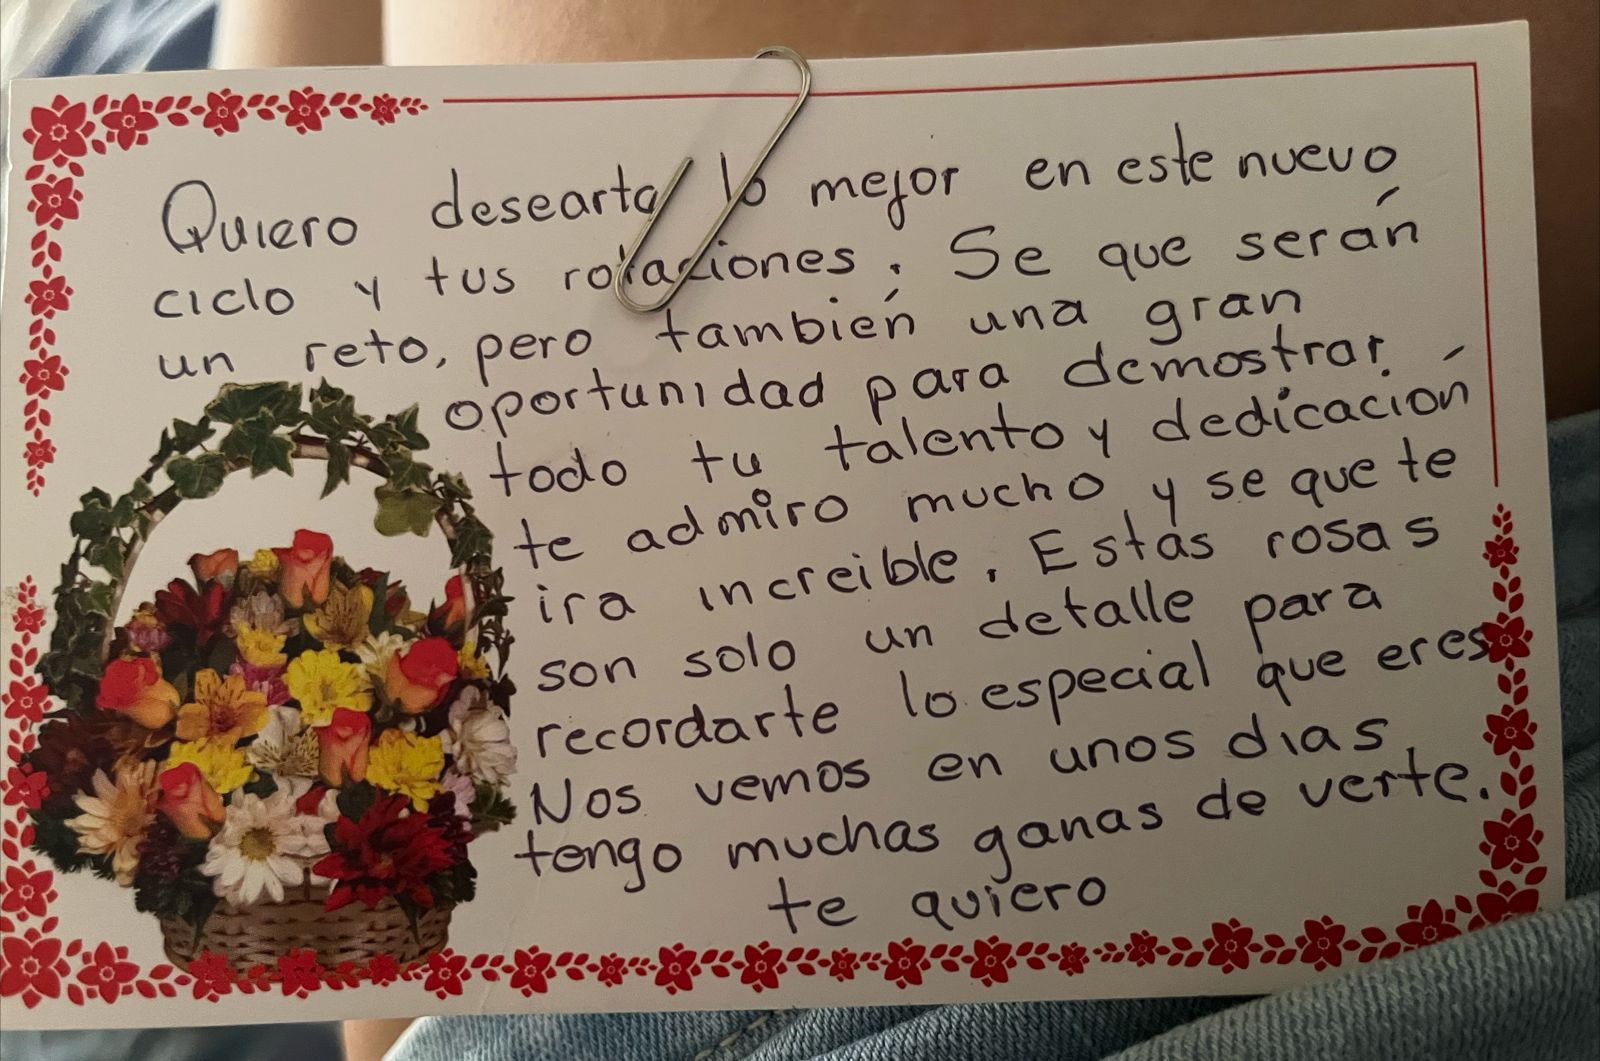 Quiero desearta lo mejor en este nuevo
ciclo y tus rotaciones. Se que serán
un reto, pero también una gran
oportunidad para demostrar
todo tu talento y dedicación
te admiro mucho y se que te
ira increible. Estas rosas
son solo un detalle para
recordarte lo especial que eres
Nos vemos en unos dias,
tengo muchas ganas de verte.
te quiero